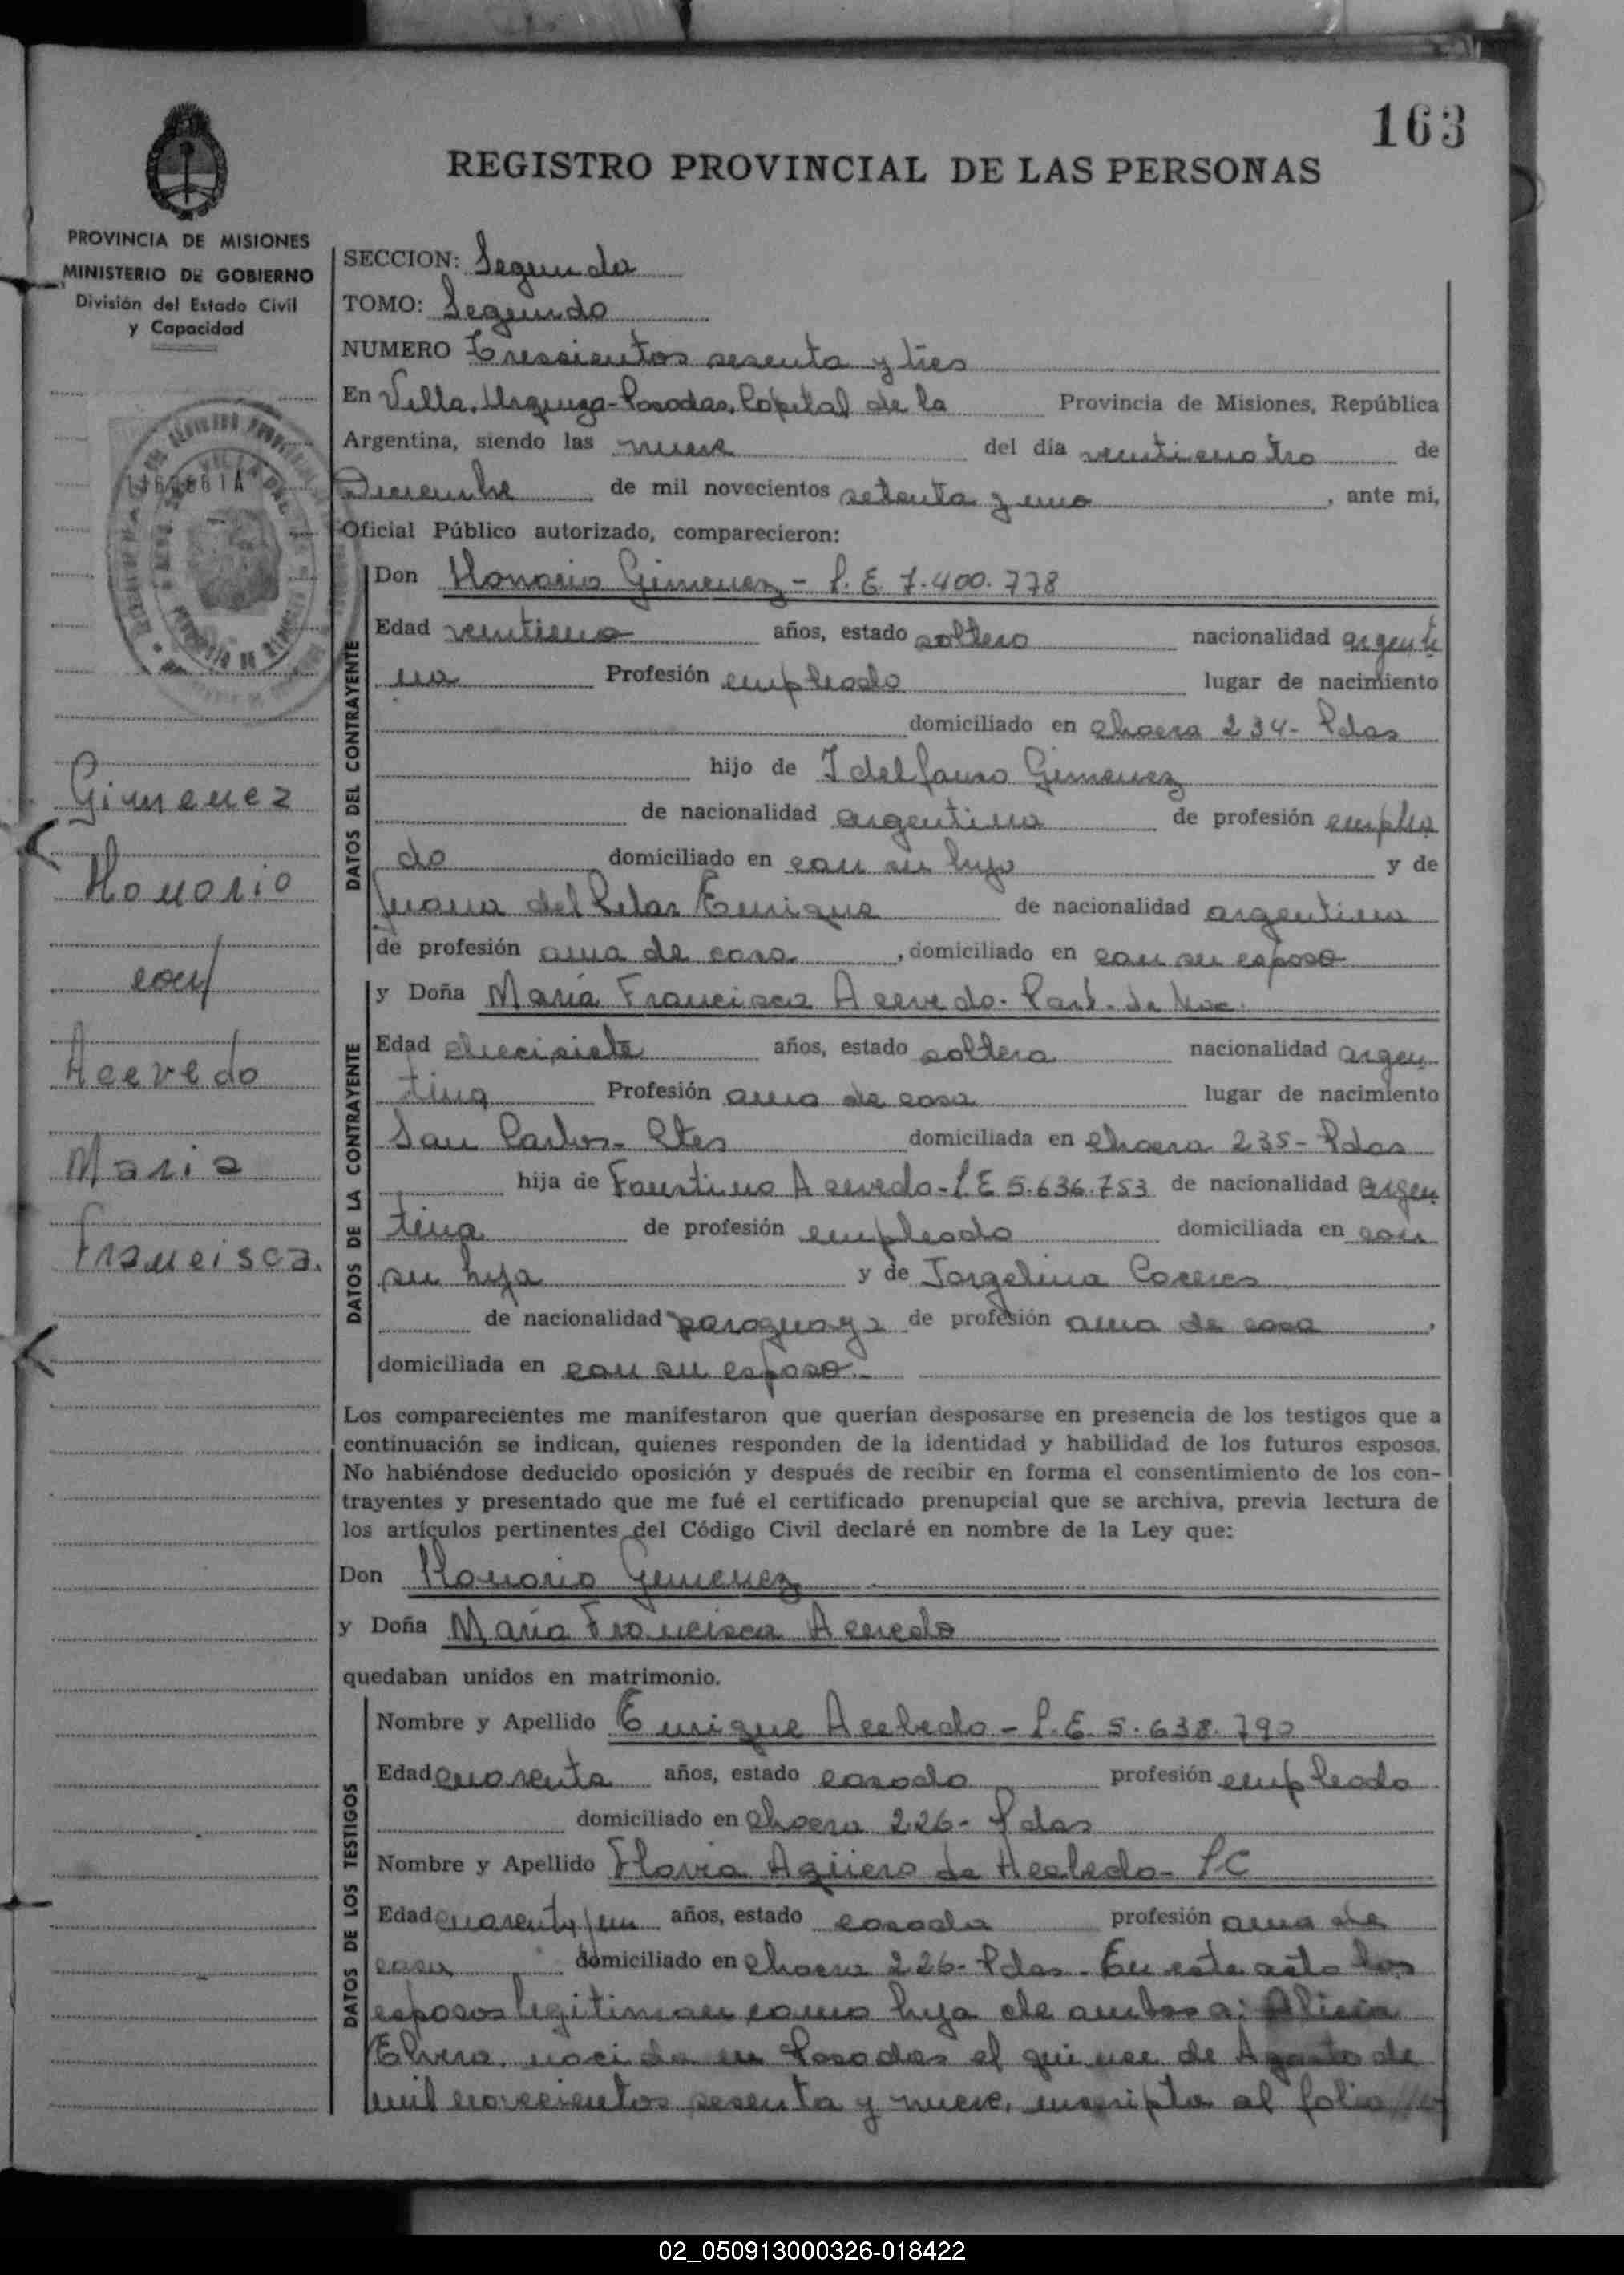 163
REGISTRO PROVINCIAL DE LAS PERSONAS
PROVINCIA DE MISIONES
MINISTERIO DE GOBIERNO
División del Estado Civil
y Capacidad
SECCION: Segunda
TOMO: Segundo
NUMERO Trescientos sesenta y tres
En Villa Urquiza-Posadas, Capital de la Provincia de Misiones, República
Argentina, siendo las nueve del día veinticuatro de
Diciembre de mil novecientos setenta y uno, ante mi,
Oficial Público autorizado, comparecieron:
DATOS DEL CONTRAYENTE
Don Honorio Gimenez - L.E. 7.400.778
Edad veintiuno años, estado soltero nacionalidad argenti
na Profesión empleado lugar de nacimiento
domiciliado en chacra 234- Pdas
hijo de Idelfonso Gimenez
de nacionalidad argentino de profesión emplea
do domiciliado en con su hijo y de
Juana del Pilar Enrique de nacionalidad argentina
de profesión ama de casa, domiciliado en con su esposo
DATOS DE LA CONTRAYENTE
y Doña María Francisca Acevedo- Part. de Nac.
Edad diecisiete años, estado soltera nacionalidad argen
tina Profesión ama de casa lugar de nacimiento
San Carlos- Ctes domiciliada en chacra 235- Pdas
hija de Faustino Acevedo- L E 5.636.753 de nacionalidad argen
tina de profesión empleado domiciliada en con
su hija y de Jorgelina Caceres
de nacionalidad paraguaya de profesión ama de casa,
domiciliada en con su esposo.-
Los comparecientes me manifestaron que querían desposarse en presencia de los testigos que a
continuación se indican, quienes responden de la identidad y habilidad de los futuros esposos.
No habiéndose deducido oposición y después de recibir en forma el consentimiento de los con-
trayentes y presentado que me fué el certificado prenupcial que se archiva, previa lectura de
los artículos pertinentes del Código Civil declaré en nombre de la Ley que:
Don Honorio Gimenez
y Doña María Francisca Acevedo
quedaban unidos en matrimonio.
DATOS DE LOS TESTIGOS
Nombre y Apellido Enrique Acebedo - L.E. 5.638.790
Edad cuarenta años, estado casado profesión empleado
domiciliado en chacra 226- Pdas
Nombre y Apellido Flavia Agüero de Acebedo- LC
Edad cuarenta/un años, estado casada profesión ama de
casa domiciliado en chacra 226- Pdas- En este acto los
esposos legitiman como hija de ambos a: Alicia
Elvira, nacida en Posadas el quince de Agosto de
mil novecientos sesenta y nueve, inscripta al folio
Gimenez
Honorio
con/
Acevedo
Maria
Francisca.
02_050913000326-018422